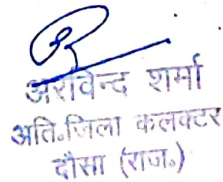 अरविन्द शर्मा
अति॰जिला कलक्टर
दौसा (राज॰)